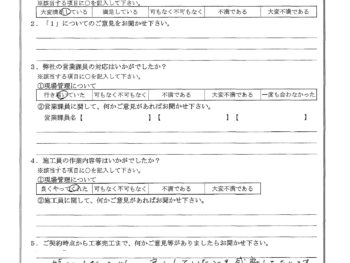 ※該当する項目に○を記入して下さい。
大変満足している 満足している 可もなく不可もなく 不満である 大変不満である
2．「1」についてのご意見をお聞かせ下さい。
3．弊社の営業課員の対応はいかがでしたか？
※該当する項目に○を記入して下さい。
①現場管理について
行き届いていた 可もなく不可もなく 不満である 大変不満である 一度も会わなかった
②営業課員に関して、何かご意見があればお聞かせ下さい。
営業課員名【 】【 】【 】
4．施工員の作業内容等はいかがでしたか？
※該当する項目に○を記入して下さい。
①現場管理について
良くやっていた 可もなく不可もなく 不満である 大変不満である
②施工員に関して、何かご意見があればお聞かせ下さい。
5．ご契約時点から工事完工まで、何かご意見等がありましたらお聞かせ下さい。